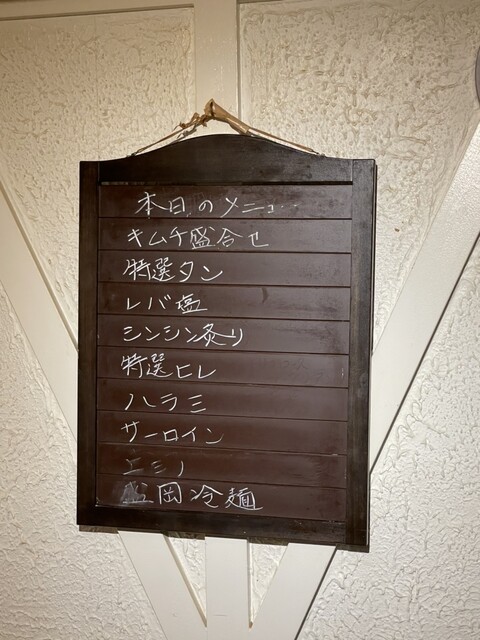 本日のメニュー
キムチ盛合せ
特選タン
レバ塩
シンシン炙り
特選ヒレ
ハラミ
サーロイン
ミノ
盛岡冷麺